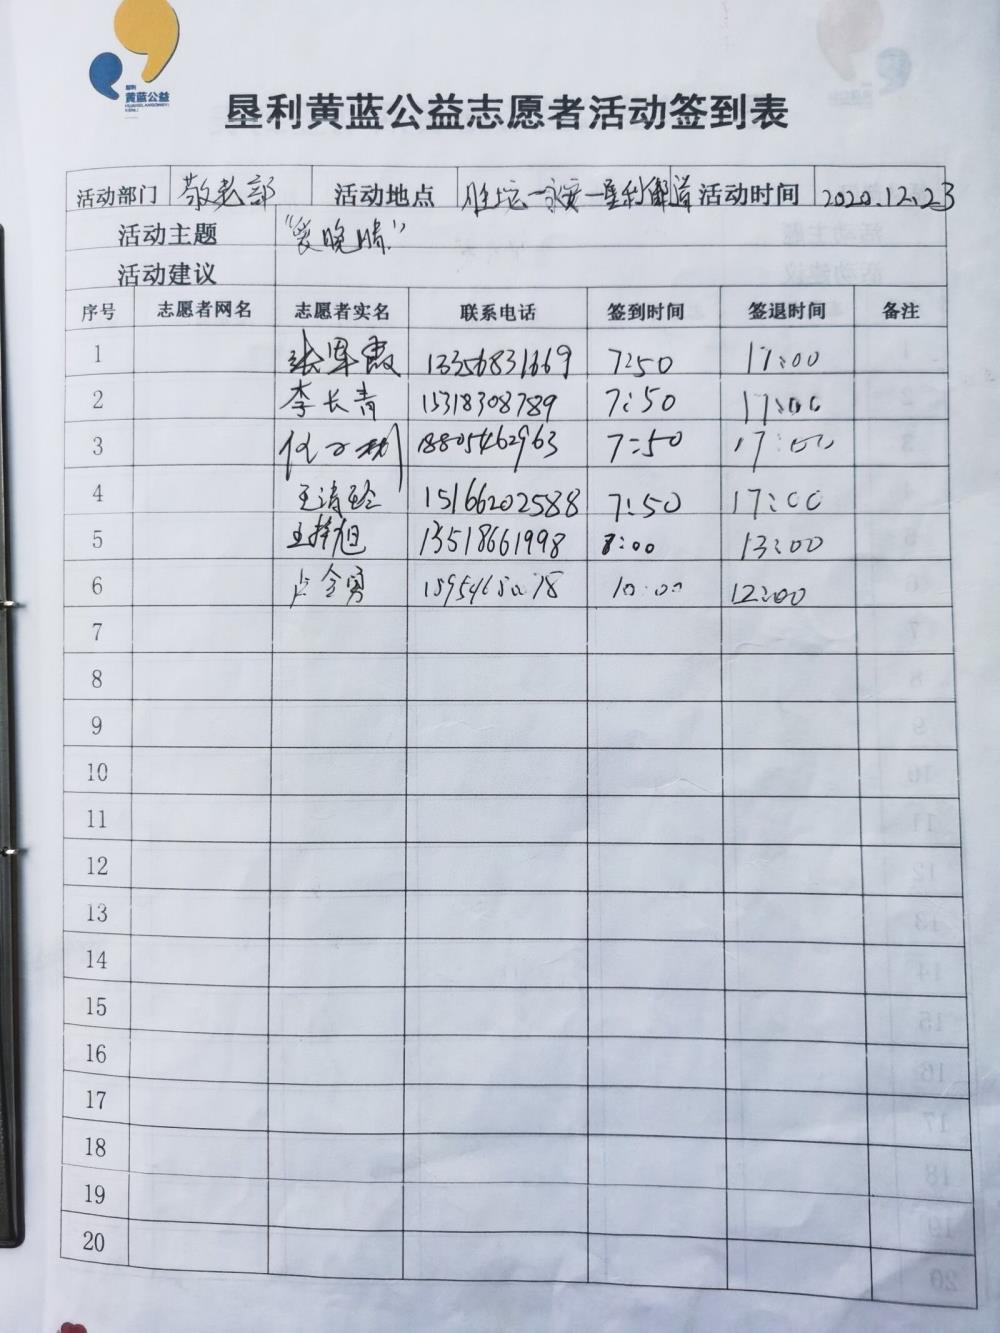 垦利
黄蓝公益
垦利黄蓝公益志愿者活动签到表
活动部门 敬老部 活动地点 胜坨—永安—垦利街道 活动时间 2020.12.23
活动主题 "爱晚晴"
活动建议
序号 志愿者网名 志愿者实名 联系电话 签到时间 签退时间 备注
1 13356831669 7:50 17:00
2 李长青 15318308789 7:50 17:00
3 18805462963 7:50 17:00
4 15166202588 7:50 17:00
5 13518661998 8:00 13:00
6 10:00 12:00
7
8
9
10
11
12
13
14
15
16
17
18
19
20